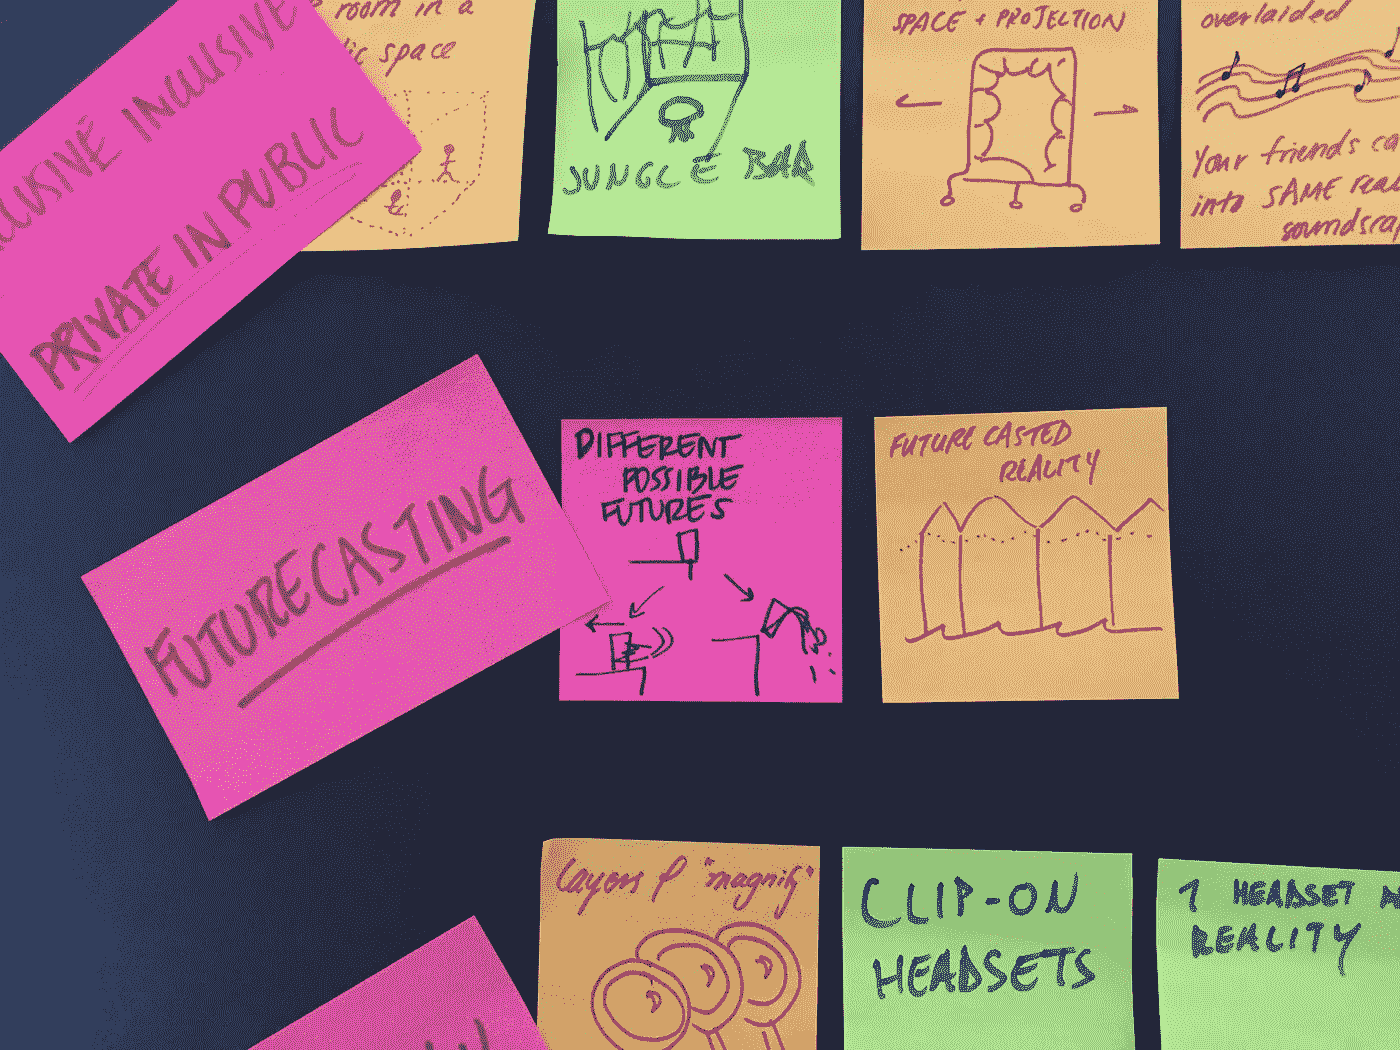 INCLUSIVE
PRIVATE IN PUBLIC
room in a
space
JUNGLE BAR
SPACE + PROJECTION
overlaided
Your friends
into SAME
FUTURECASTING
DIFFERENT
POSSIBLE
FUTURES
FUTURE CASTED
REALITY
Layers of "magnify"
CLIP-ON
HEADSETS
1 HEADSET
REALITY